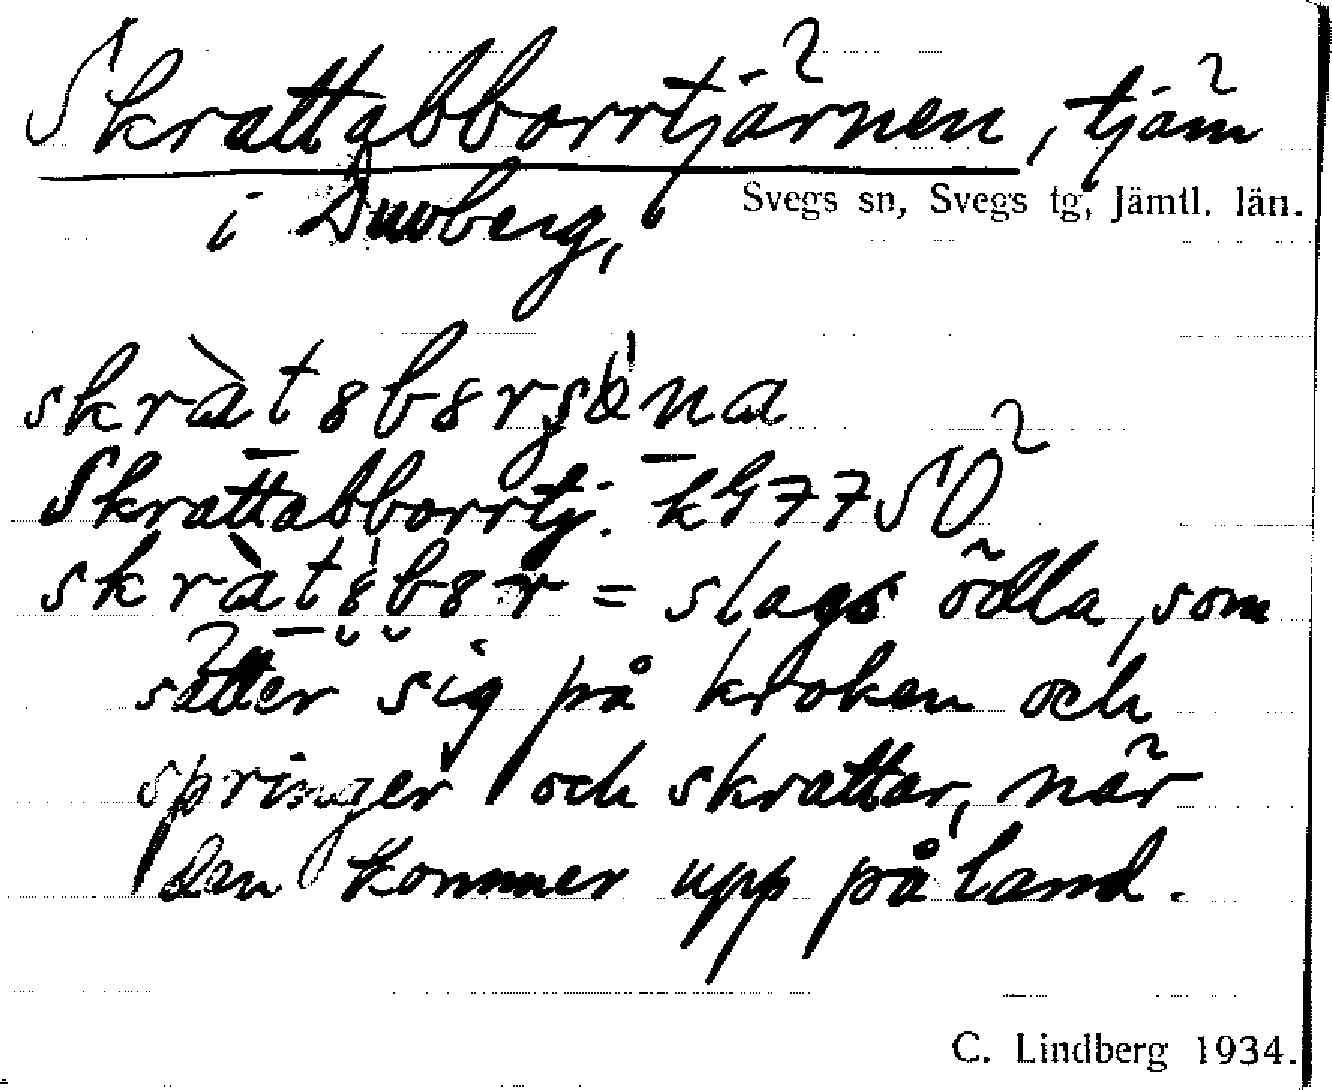 Skrattabborrtjärnen, tjärn
i Duvberg,
Svegs sn, Svegs tg, Jämtl. län.
skràt8b8rʂö́na
Skrattabborrtj. kG77SÖ
skràt8b8r = slags ödla, som
sätter sig på kroken och
springer och skrattar, när
den kommer upp på land.
C. Lindberg 1934.